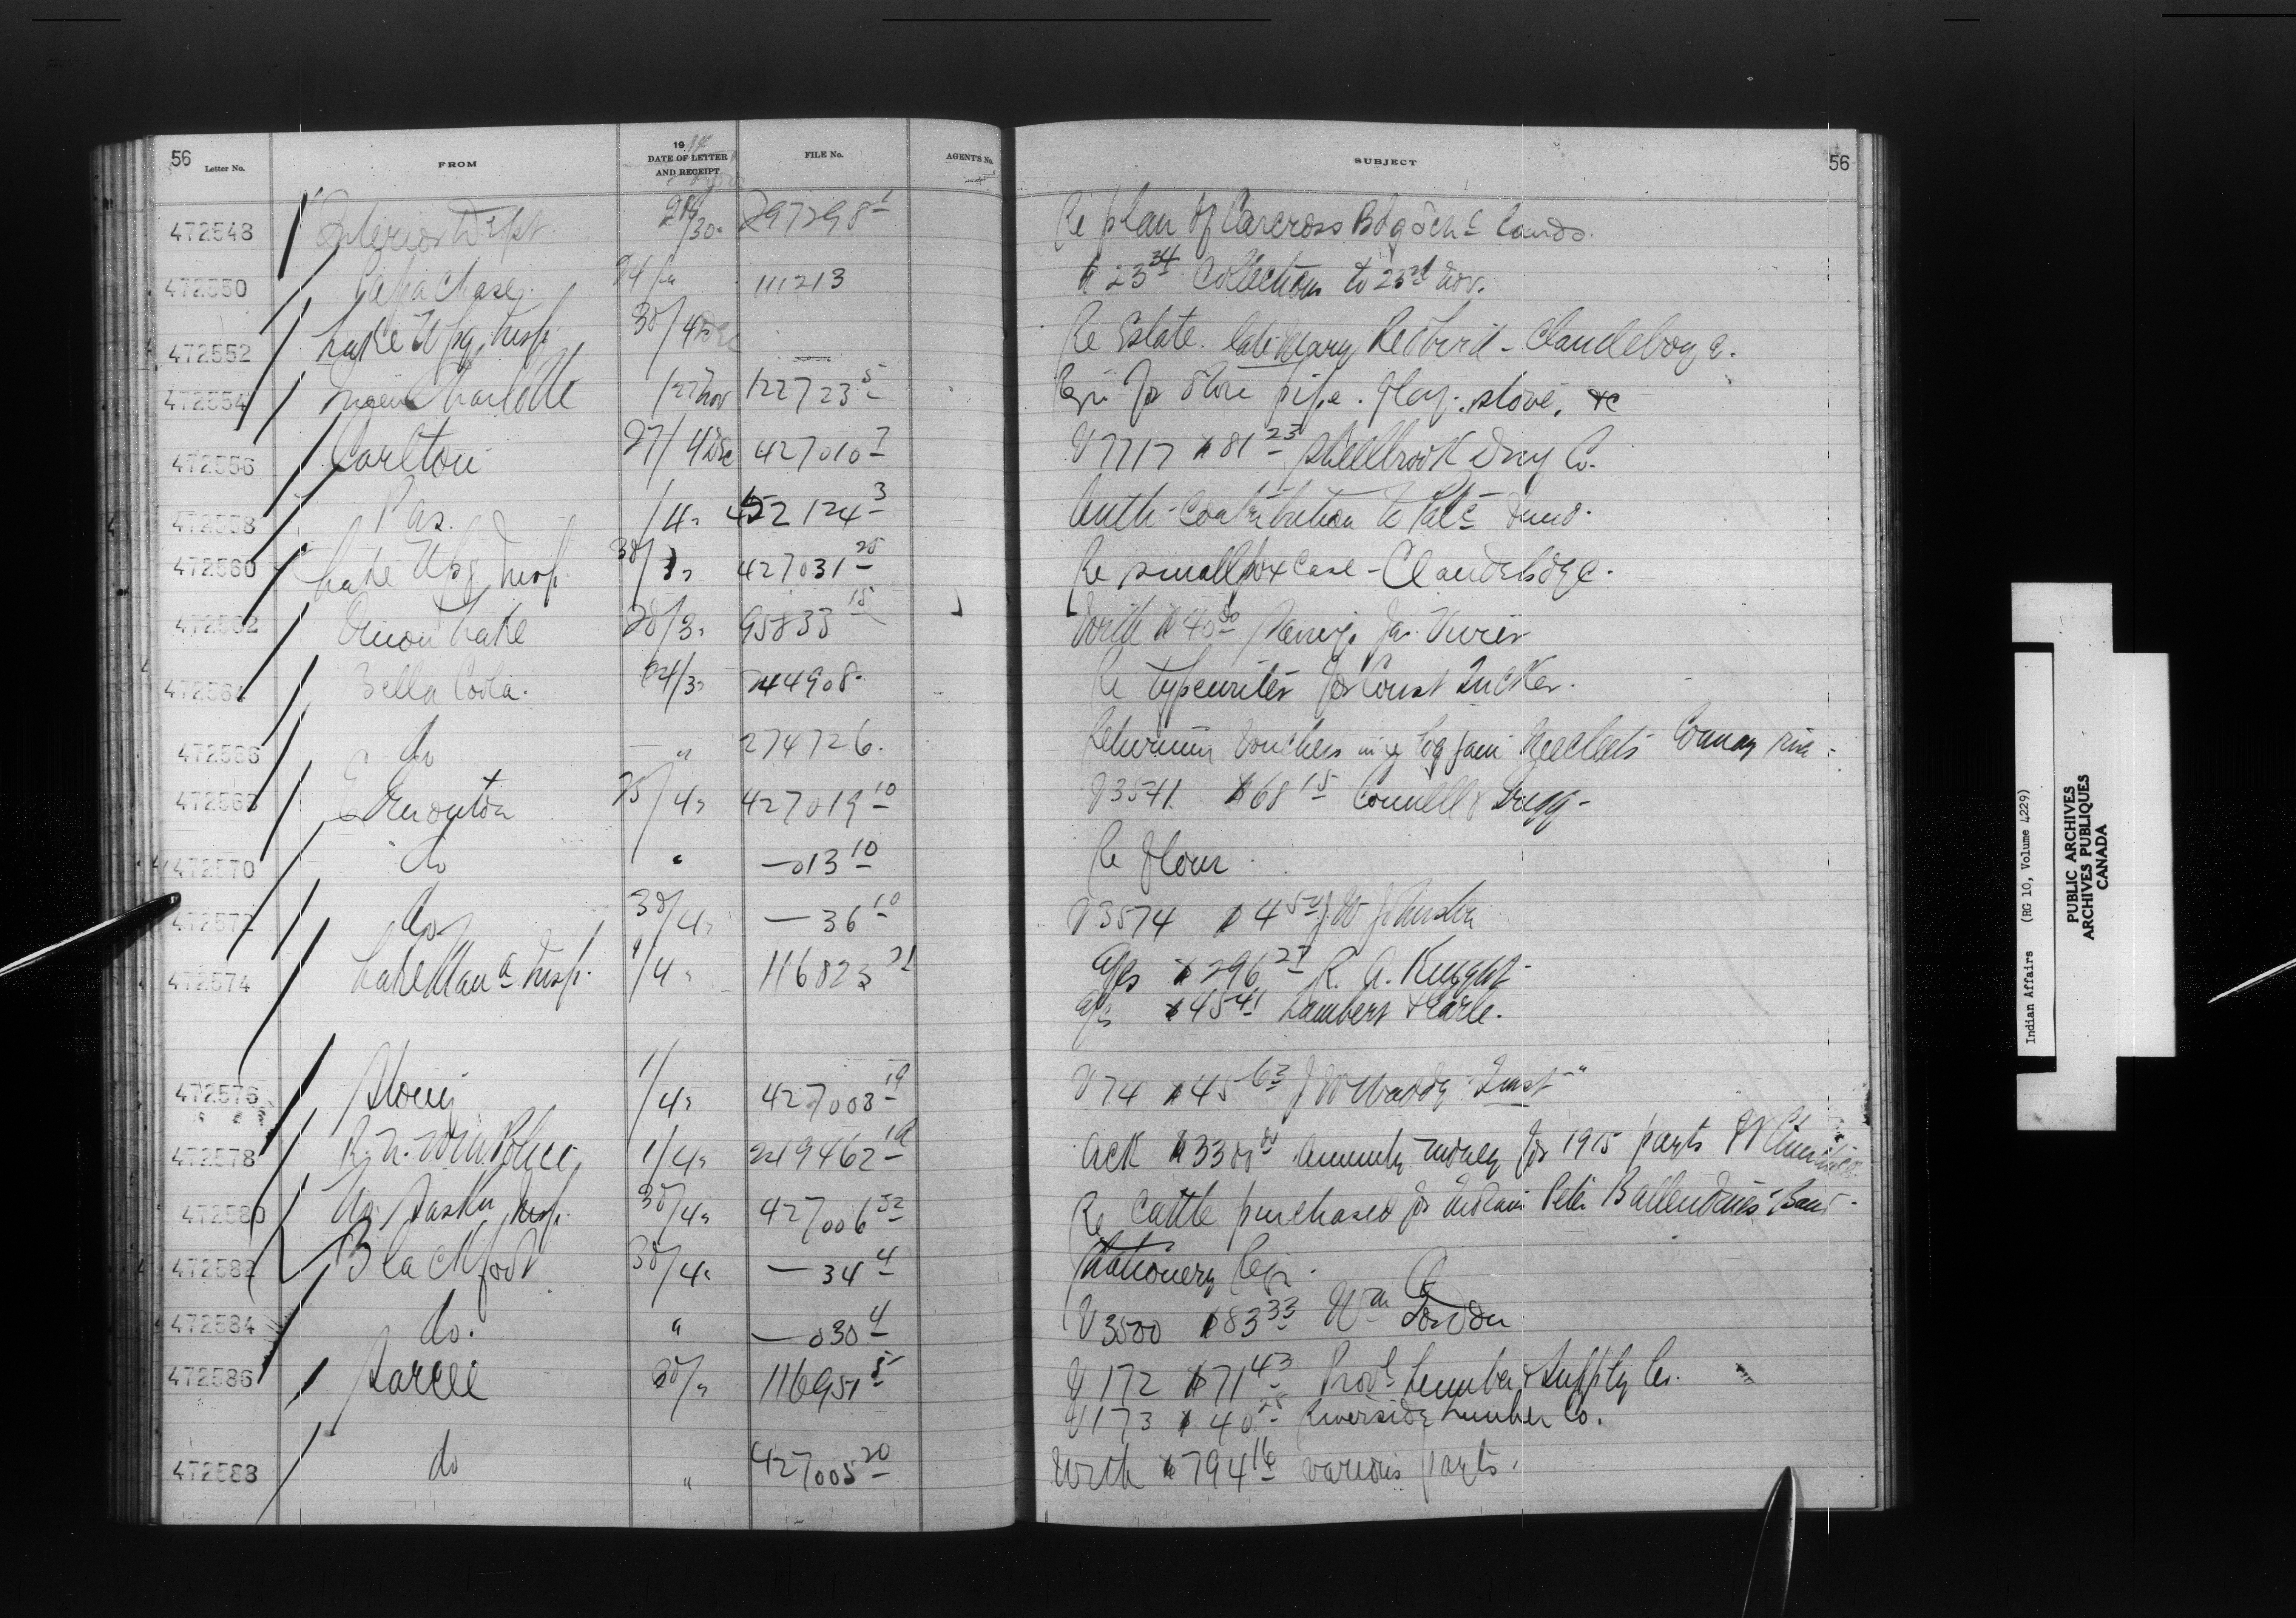 56
Letter No. FROM 1914 DATE OF LETTER AND RECEIPT FILE No. AGENT'S No. SUBJECT 56
472548 Interior Dept. 30 297298 1 Re plan of Carcross Bdg Sch Lands.
472550 Papachase 24/ " 111213 $23 34 Collections to 23rd Nov.
472552 Lake Wpg Insp. 30/4 Dec Re Estate late Mary Redbird - Clandeboye.
472554 Queen Charlotte /27 Nov 122723 5 Req for Stove pipe. flag. stove, &c
472556 Carlton 27/4 Dec 427010 7 V7717 $81 23 Shellbrook Drug Co.
472558 Pas. 1/4 " 452124 3 Auth contribution to Pat. Fund.
472560 Lake Wpg Insp. 30/3 " 427031 25 Re smallpox case - Clandeboye.
472562 Onion Lake 20/3 " 95833 15 With $40 00 Jas. Vivier
472564 Bella Coola. 24/3 " 244908. Re typewriter for Const Tucker.
472566 do — " 274726. Returning Vouchers log jam
472568 Edmonton 25/4 " 427019 10 V3541 $68 15 Connell &
472570 do " — 013 10 Re flour.
472572 do 30/4 " — 36 10 V3574 $4 50 J W
472574 Lake Man a Insp. 1/4 " 116823 21 a/cs $296 27 R. A. Knight
$45 41 Lambert & Earle.
472576 Stony 1/4 " 427008 19 V74 $45 63 J W
472578 R. N. W. M. Police 1/4 " 219462 19 Ack $3300 00 annuity money for 1915 payts
472580 No. Saskn Insp. 30/4 " 427006 52 Re cattle purchased for Indians Peter Ballendine's Band.
472582 Blackfoot 30/4 " — 34 4 Stationery Req.
472584 do. " — 030 4 V3500 $83 33 Wm Gordon.
472586 Sarcee 30/ " 116951 5 V172 $71 43 Prov'l Lumber & Supply Co.
V173 $40 25 Riverside Lumber Co.
472588 do " 427005 20 With $794 16 various payts.
Indian Affairs (RG 10, Volume 4229)
PUBLIC ARCHIVES
ARCHIVES PUBLIQUES
CANADA